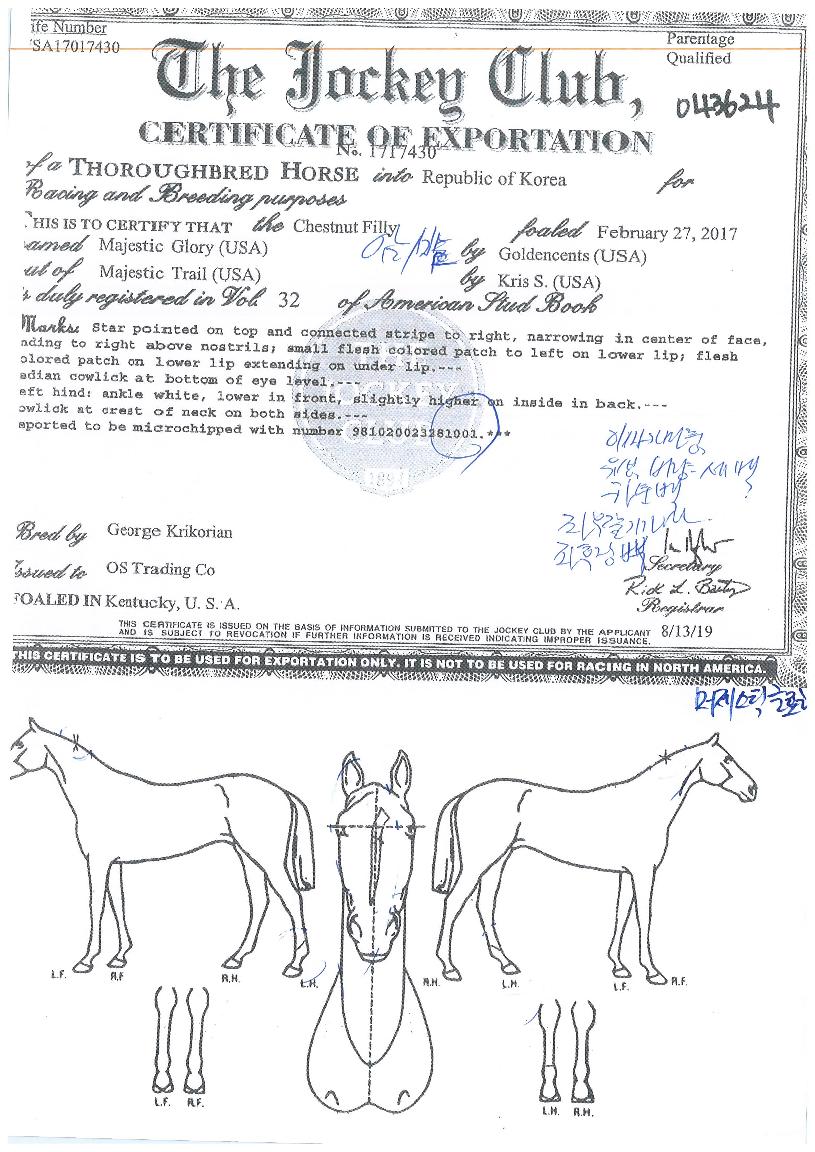 ife Number
SA17017430
Parentage
Qualified
The Jockey Club,
043624
CERTIFICATE OF EXPORTATION
No. 1717430
of a THOROUGHBRED HORSE into Republic of Korea for
Racing and Breeding purposes
THIS IS TO CERTIFY THAT the Chestnut Filly foaled February 27, 2017
amed Majestic Glory (USA) by Goldencents (USA)
ut of Majestic Trail (USA) by Kris S. (USA)
s duly registered in Vol. 32 of American Stud Book
Marks: Star pointed on top and connected stripe to right, narrowing in center of face,
nding to right above nostrils; small flesh colored patch to left on lower lip; flesh
olored patch on lower lip extending on under lip.---
edian cowlick at bottom of eye level.---
eft hind: ankle white, lower in front, slightly higher on inside in back.---
owlick at crest of neck on both sides.---
eported to be microchipped with number 981020023281001.***
1894
Bred by George Krikorian
Issued to OS Trading Co
Secretary
Registrar
FOALED IN Kentucky, U. S. A.
THIS CERTIFICATE IS ISSUED ON THE BASIS OF INFORMATION SUBMITTED TO THE JOCKEY CLUB BY THE APPLICANT
AND IS SUBJECT TO REVOCATION IF FURTHER INFORMATION IS RECEIVED INDICATING IMPROPER ISSUANCE.
8/13/19
THIS CERTIFICATE IS TO BE USED FOR EXPORTATION ONLY. IT IS NOT TO BE USED FOR RACING IN NORTH AMERICA.
머제스틱글로리
L.F. R.F. R.H. L.H. R.H. L.H. L.F. R.F.
L.F. R.F. L.H. R.H.